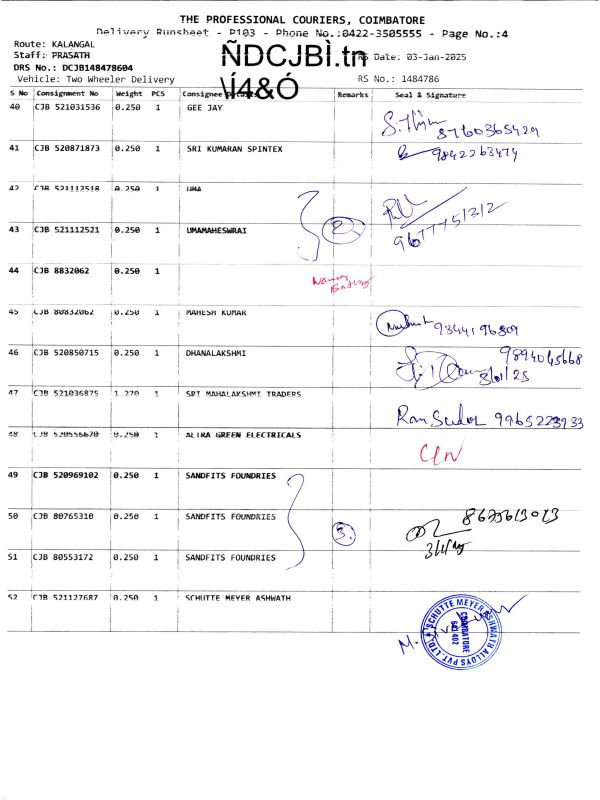 THE PROFESSIONAL COURIERS, COIMBATORE
Delivery Runsheet - P103 - Phone No.:0422-3505555 - Page No.:4
Route: KALANGAL
ÑDCJBÌ.tn
Staff: PRASATH
RS Date: 03-Jan-2025
DRS No.: DCJB148478604
\Í4&Ó
Vehicle: Two Wheeler Delivery
RS No.: 1484786
S No Consignment No Weight PCS Consignee Details Remarks Seal & Signature
40 CJB 521031536 0.250 1 GEE JAY
8760365429
41 CJB 520871873 0.250 1 SRI KUMARAN SPINTEX
9842263474
42 CJB 521112518 0.250 1 UMA
43 CJB 521112521 0.250 1 UMAMAHESWRAI
2
9677751212
44 CJB 8832062 0.250 1
45 CJB 80832062 0.250 1 MAHESH KUMAR
9344196809
46 CJB 520850715 0.250 1 DHANALAKSHMI
9894045668
3/01/25
47 CJB 521036875 1.270 1 SRI MAHALAKSHMI TRADERS
9965223933
48 CJB 520556670 0.250 1 ALTRA GREEN ELECTRICALS
49 CJB 520969102 0.250 1 SANDFITS FOUNDRIES
50 CJB 80765310 0.250 1 SANDFITS FOUNDRIES
3.
51 CJB 80553172 0.250 1 SANDFITS FOUNDRIES
52 CJB 521127687 0.250 1 SCHUTTE MEYER ASHWATH
SCHUTTE MEYER ASHWATH ALLOYS PVT. LTD.
COIMBATORE
641 402